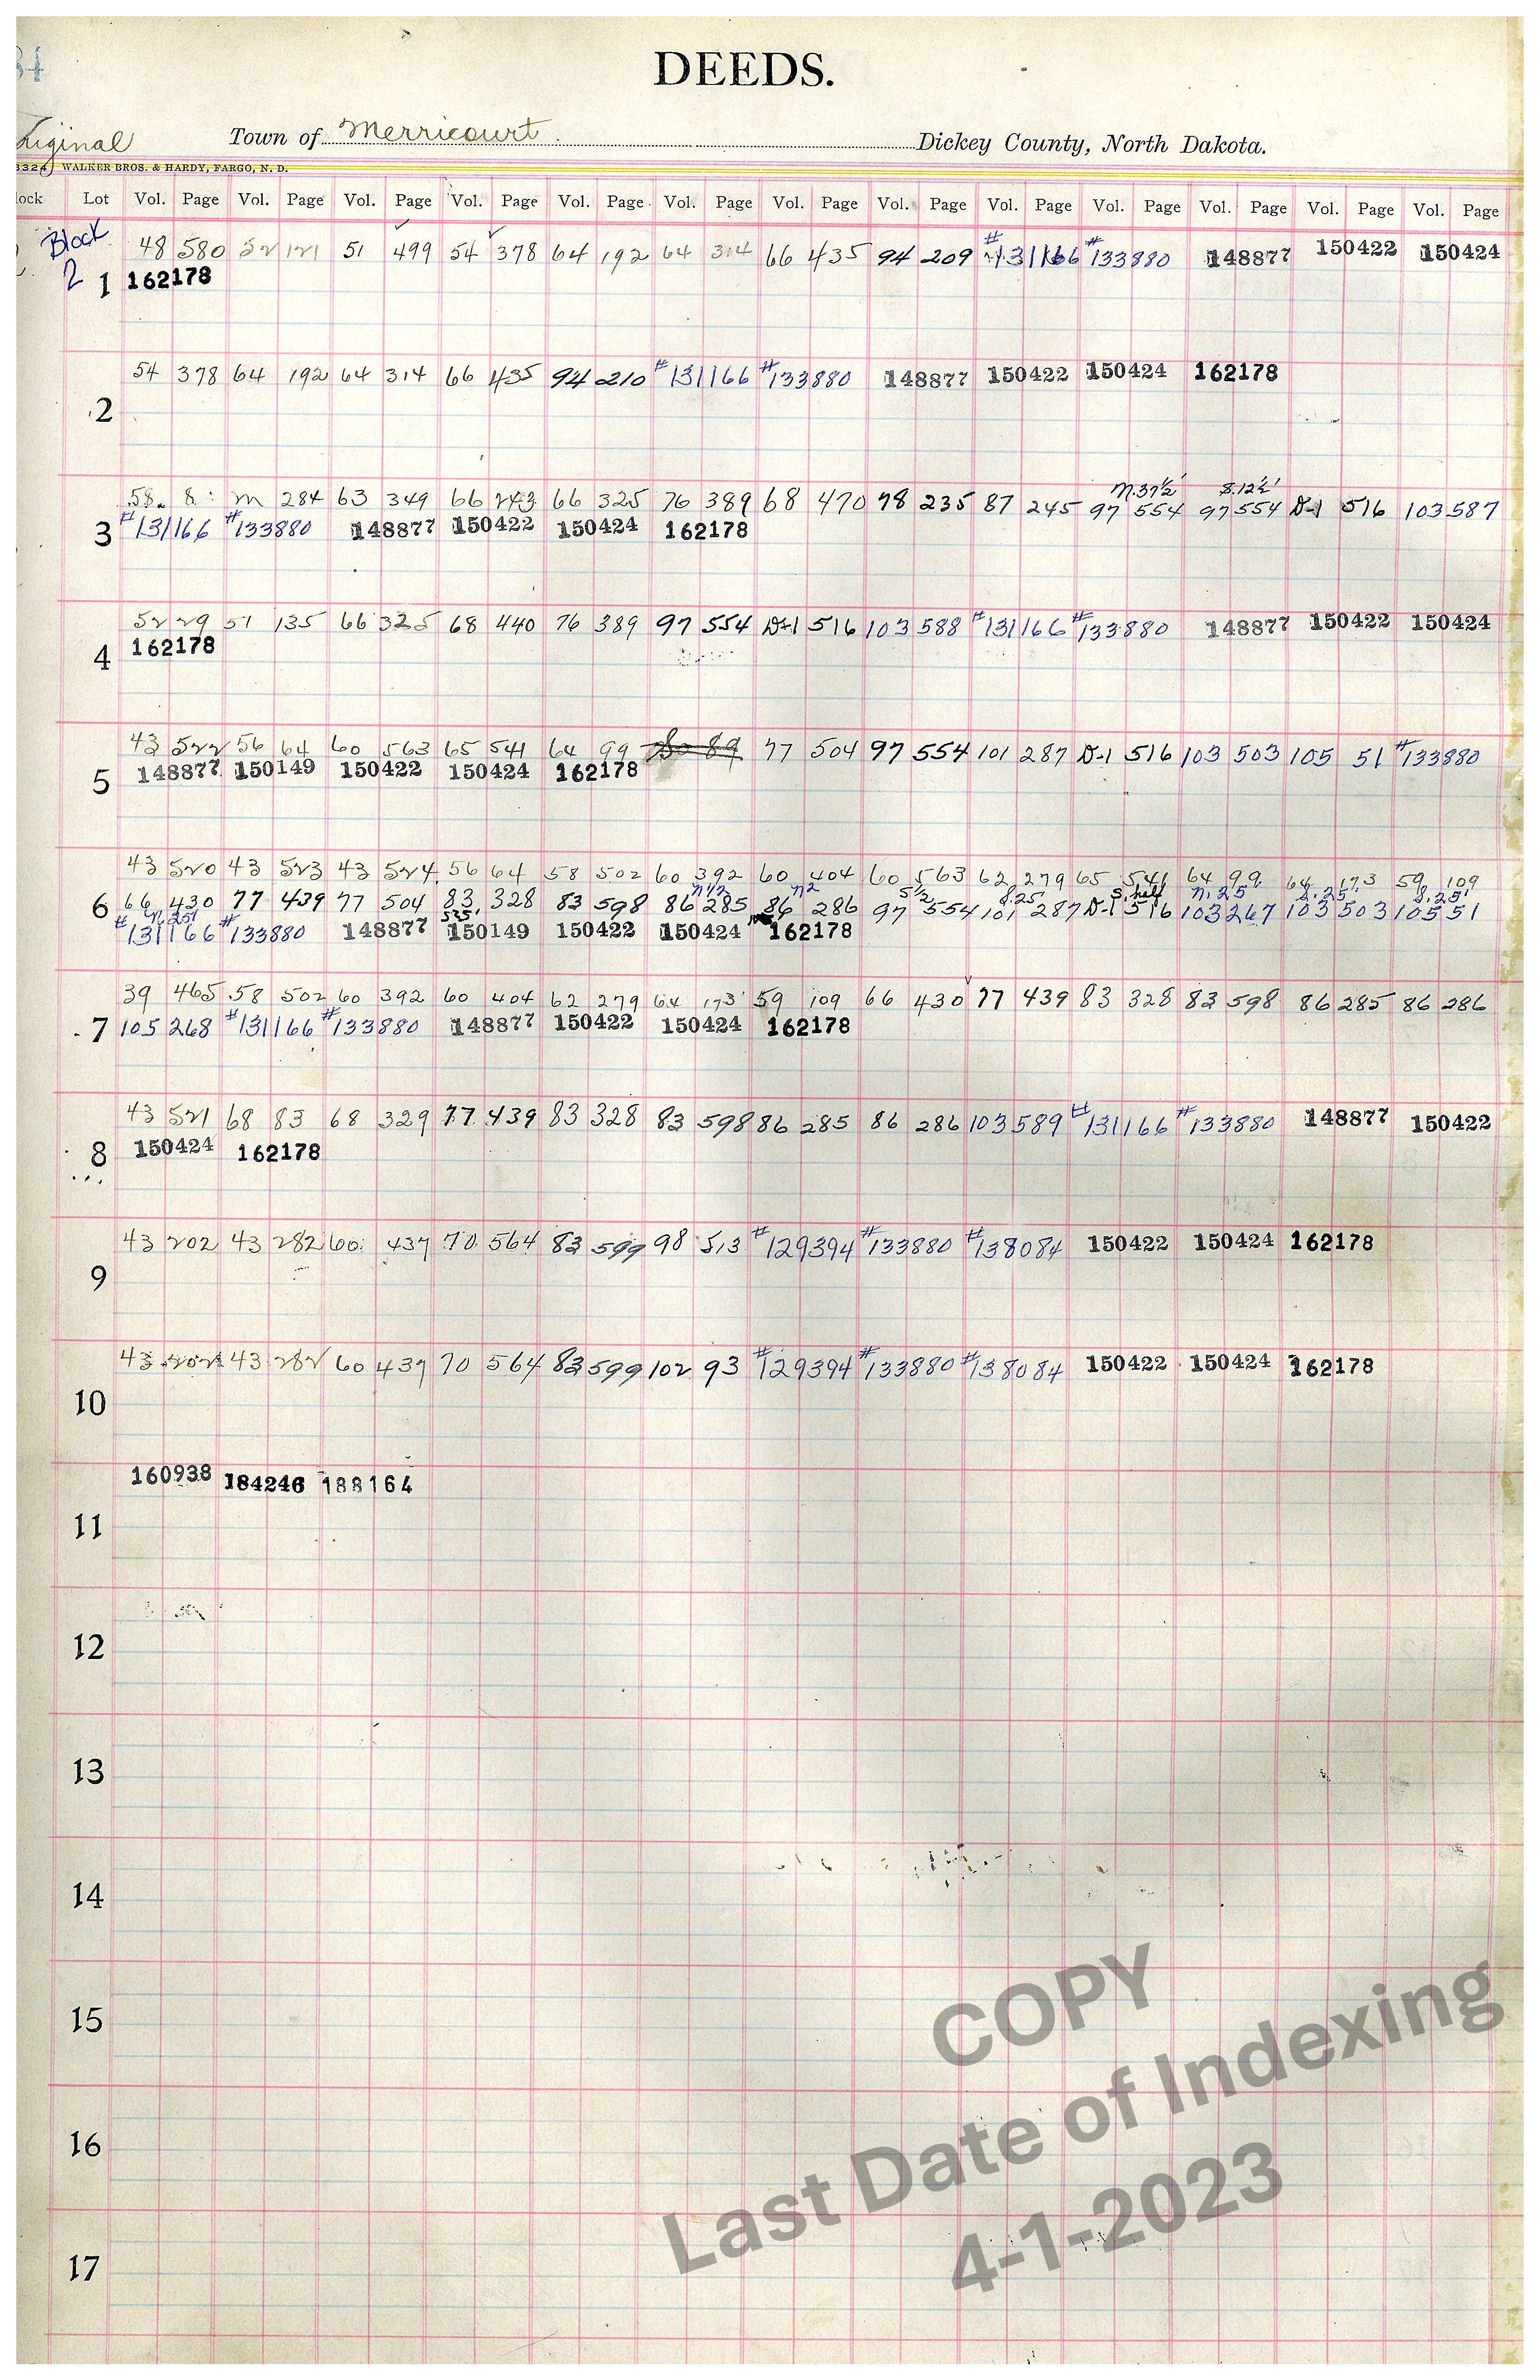 34
DEEDS.
Original Town of Merricourt Dickey County, North Dakota.
3324 WALKER BROS. & HARDY, FARGO, N. D.
lock Lot Vol. Page Vol. Page Vol. Page Vol. Page Vol. Page Vol. Page Vol. Page Vol. Page Vol. Page Vol. Page Vol. Page Vol. Page Vol. Page
Block 48 580 52 121 51 499 54 378 64 192 64 314 66 435 94 209 #131166 #133880 148877 150422 150424
2 1 162178
54 378 64 192 64 314 66 435 94 210 #131166 #133880 148877 150422 150424 162178
2
N.37½' S.12½'
58 8 M 284 63 349 66 243 66 325 76 389 68 470 78 235 87 245 97 554 97 554 D-1 516 103 587
3 #131166 #133880 148877 150422 150424 162178
52 29 51 135 66 325 68 440 76 389 97 554 D-1 516 103 588 #131166 #133880 148877 150422 150424
162178
4
43 522 56 64 60 563 65 541 64 99 77 504 97 554 101 287 D-1 516 103 503 105 51 #133880
148877 150149 150422 150424 162178
5
43 520 43 523 43 524 56 64 58 502 60 392 60 404 60 563 62 279 65 541 64 99 64 173 59 109
N 1/2 N2 S 1/2 S.25 S. half N. 25 S. 25 S. 25'
6 66 430 77 439 77 504 83 328 83 598 86 285 86 286 97 554 101 287 D-1 516 103 267 103 503 105 51
N. 25' S25'
#131166 #133880 148877 150149 150422 150424 162178
39 465 58 502 60 392 60 404 62 279 64 173 59 109 66 430 77 439 83 328 83 598 86 285 86 286
7 105 268 #131166 #133880 148877 150422 150424 162178
43 521 68 83 68 329 77 439 83 328 83 598 86 285 86 286 103 589 #131166 #133880 148877 150422
8 150424 162178
43 202 43 282 60 437 70 564 83 599 98 513 #129394 #133880 #138084 150422 150424 162178
9
43 202 43 282 60 437 70 564 83 599 102 93 #129394 #133880 #138084 150422 150424 162178
10
160938 184246 188164
11
12
13
14
15
16
17
COPY
Last Date of Indexing
4-1-2023